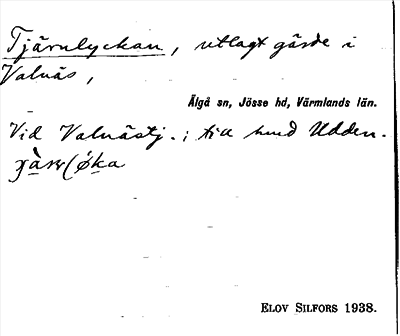 Tjärnlyckan, utlagt gärde i
Valnäs,
Älgå sn, Jösse hd, Värmlands län.
Vid Valnästj.; till hmd Udden.
ELOV SILFORS 1938.